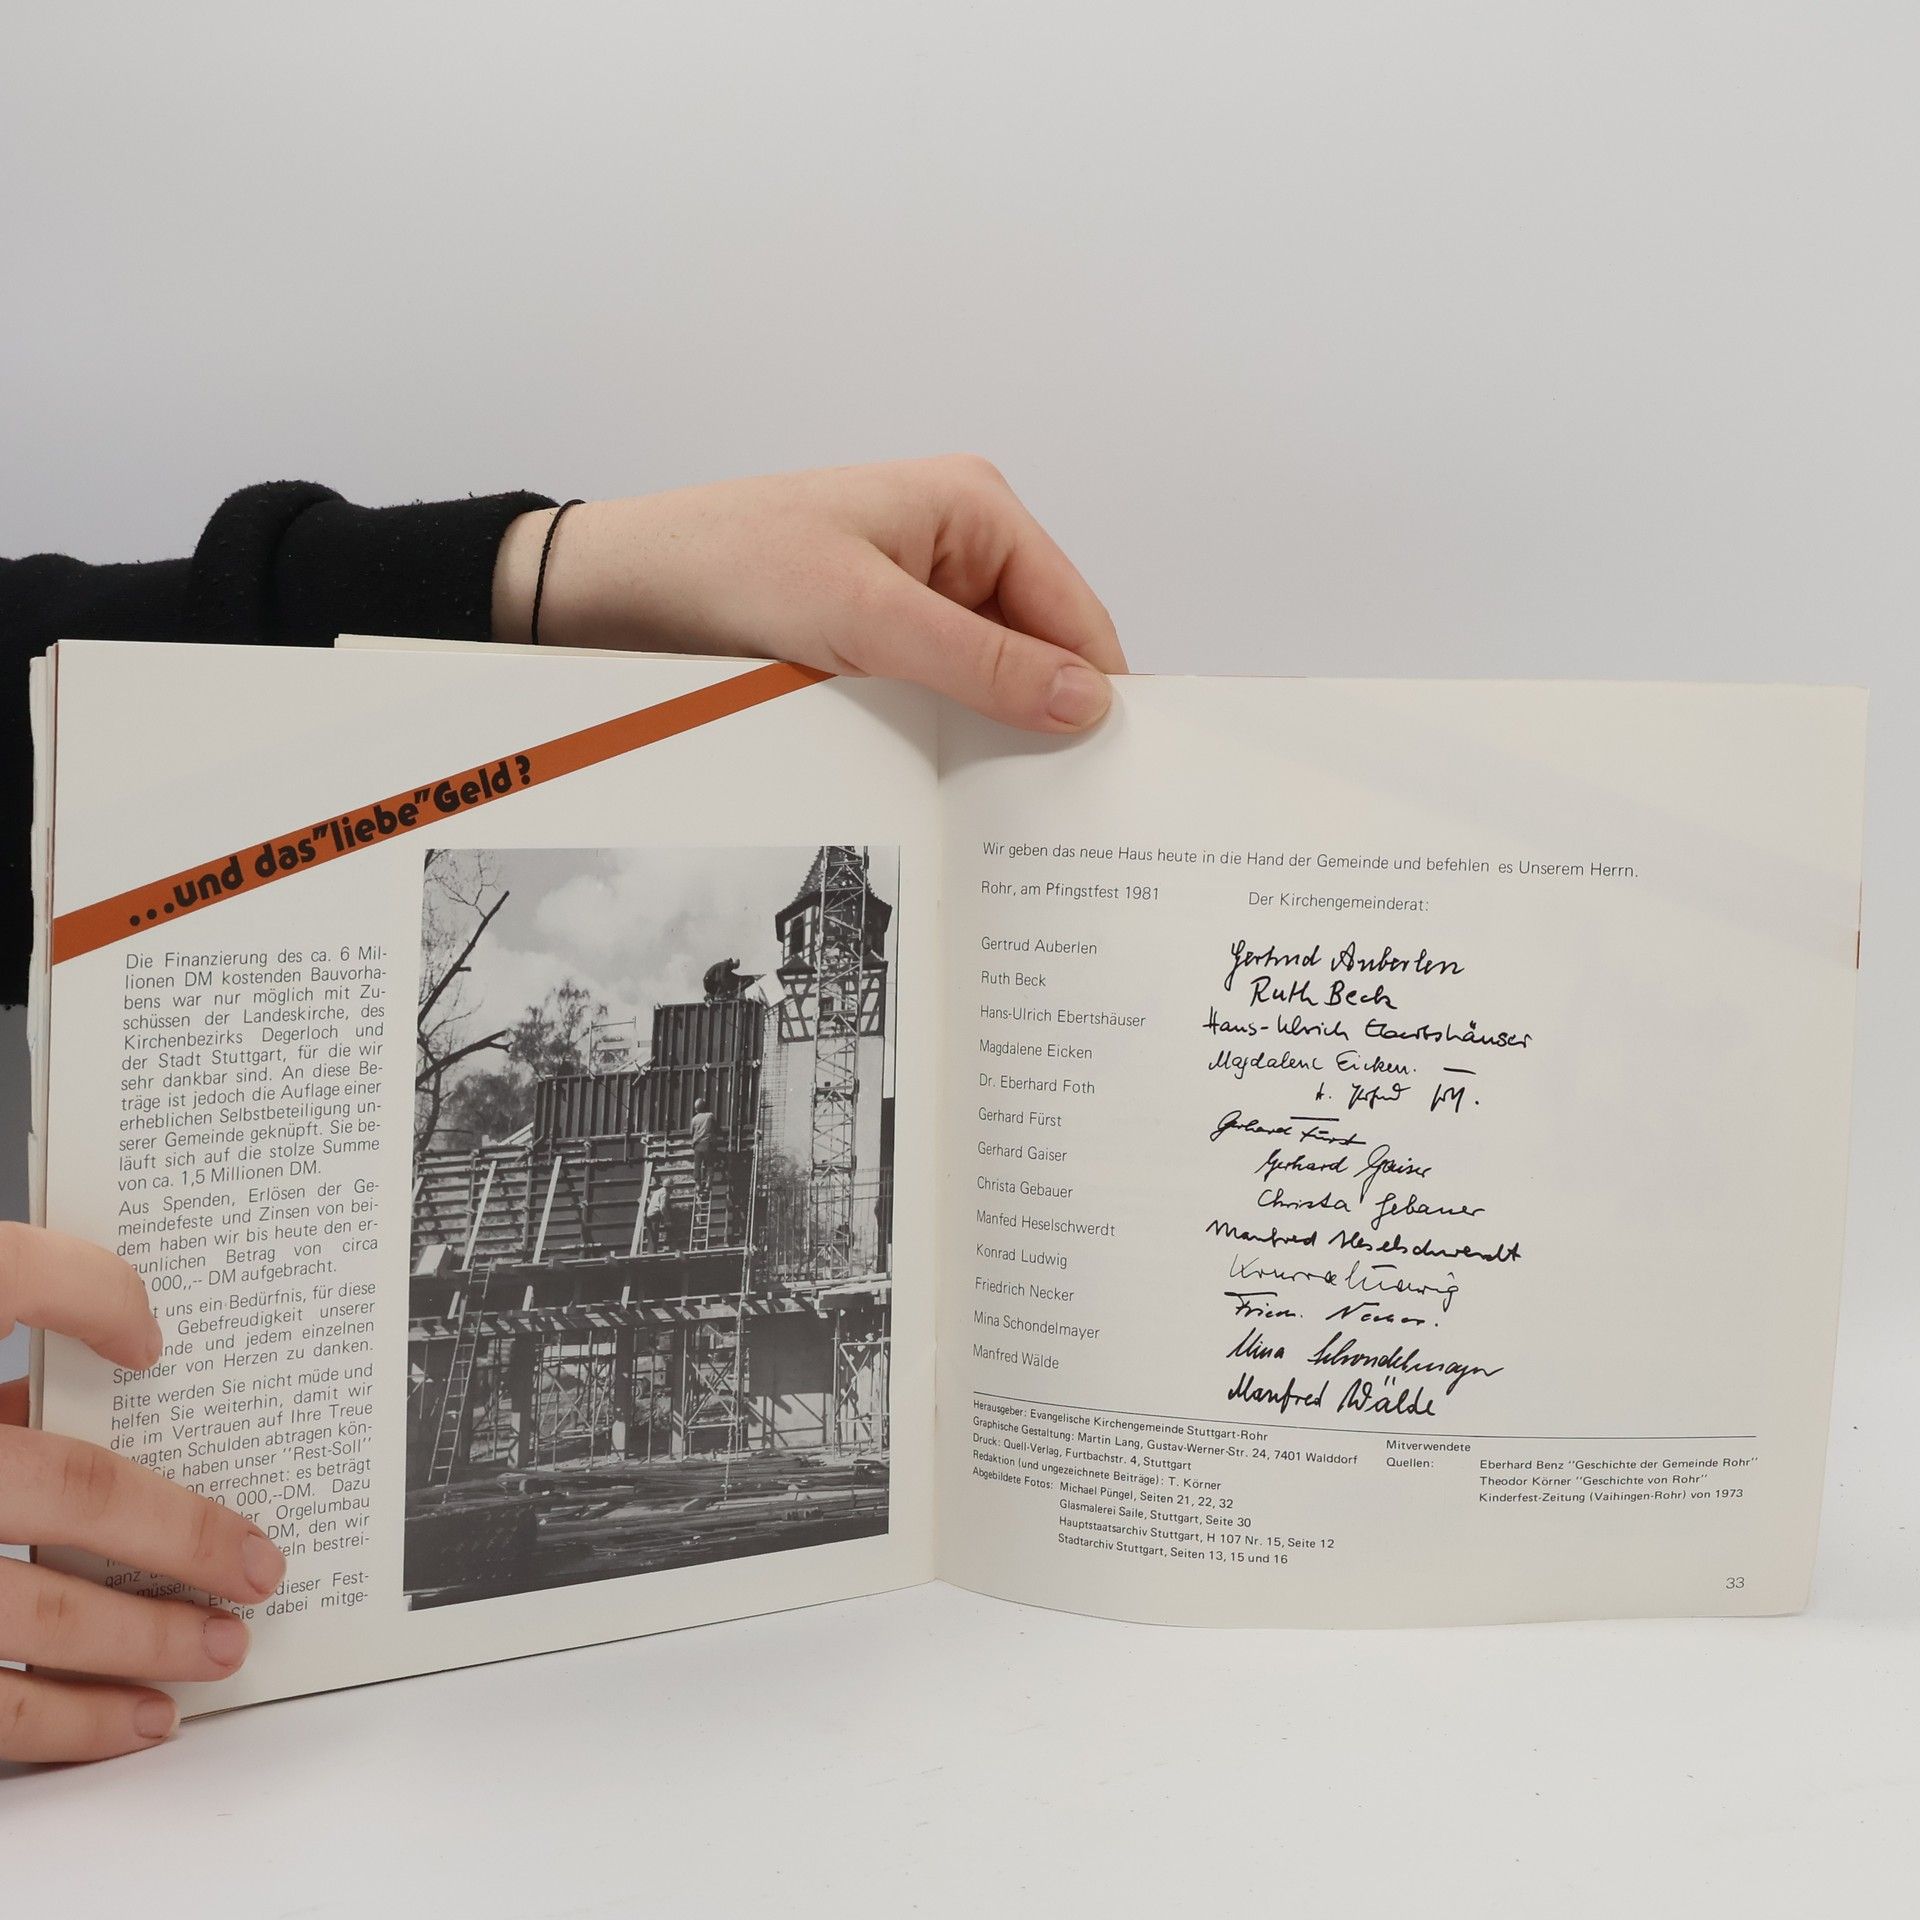 ...und das "liebe" Geld?
Die Finanzierung des ca. 6 Mil-
lionen DM kostenden Bauvorha-
bens war nur möglich mit Zu-
schüssen der Landeskirche, des
Kirchenbezirks Degerloch und
der Stadt Stuttgart, für die wir
sehr dankbar sind. An diese Be-
träge ist jedoch die Auflage einer
erheblichen Selbstbeteiligung un-
serer Gemeinde geknüpft. Sie be-
läuft sich auf die stolze Summe
von ca. 1,5 Millionen DM.
Aus Spenden, Erlösen der Ge-
meindefeste und Zinsen von bei-
dem haben wir bis heute den er-
Betrag von circa
000,,-- DM aufgebracht.
uns ein Bedürfnis, für diese
Gebefreudigkeit unserer
und jedem einzelnen
Spender von Herzen zu danken.
Bitte werden Sie nicht müde und
helfen Sie weiterhin, damit wir
die im Vertrauen auf Ihre Treue
Schulden abtragen kön-
Sie haben unser "Rest-Soll"
errechnet: es beträgt
000,--DM. Dazu
Orgelumbau
DM, den wir
bestrei-
ganz
dieser Fest-
Sie dabei mitge-
Wir geben das neue Haus heute in die Hand der Gemeinde und befehlen es Unserem Herrn.
Rohr, am Pfingstfest 1981 Der Kirchengemeinderat:
Gertrud Auberlen Gertrud Auberlen
Ruth Beck Ruth Beck
Hans-Ulrich Ebertshäuser Hans-Ulrich Ebertshäuser
Magdalene Eicken Magdalene Eicken.
Dr. Eberhard Foth
Gerhard Fürst Gerhard Fürst
Gerhard Gaiser Gerhard Gaiser
Christa Gebauer Christa Gebauer
Manfed Heselschwerdt Manfred Heselschwerdt
Konrad Ludwig Konrad Ludwig
Friedrich Necker Friedr. Necker.
Mina Schondelmayer Mina Schondelmayer
Manfred Wälde Manfred Wälde
Herausgeber: Evangelische Kirchengemeinde Stuttgart-Rohr
Graphische Gestaltung: Martin Lang, Gustav-Werner-Str. 24, 7401 Walddorf
Druck: Quell-Verlag, Furtbachstr. 4, Stuttgart
Redaktion (und ungezeichnete Beiträge): T. Körner
Abgebildete Fotos: Michael Püngel, Seiten 21, 22, 32
Glasmalerei Saile, Stuttgart, Seite 30
Hauptstaatsarchiv Stuttgart, H 107 Nr. 15, Seite 12
Stadtarchiv Stuttgart, Seiten 13, 15 und 16
Mitverwendete
Quellen: Eberhard Benz "Geschichte der Gemeinde Rohr"
Theodor Körner "Geschichte von Rohr"
Kinderfest-Zeitung (Vaihingen-Rohr) von 1973
33